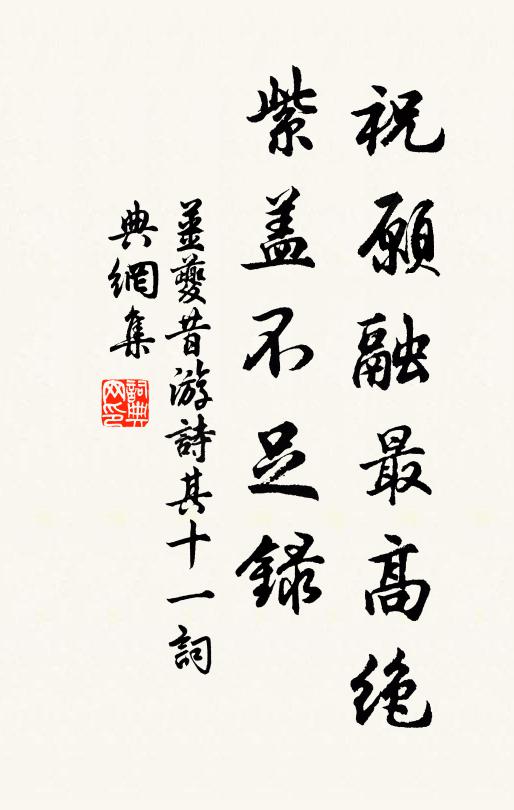 祝願融最高絶
紫蓋不足錄
姜夔昔游詩其十一詞
典網集
詞典網印